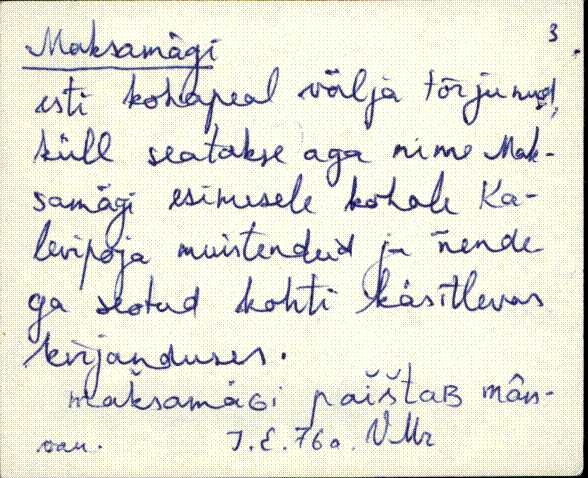 3.
Maksamägi
esti kohapeal välja tõrjunud,
küll seatakse aga nime Mak-
samägi esimesele kohale Ka-
levipoja muistendeid ja nende
ga seotud kohti käsitlevas
kirjanduses.
maksamäGi paištaB mân-
J. E. 76a. VMr